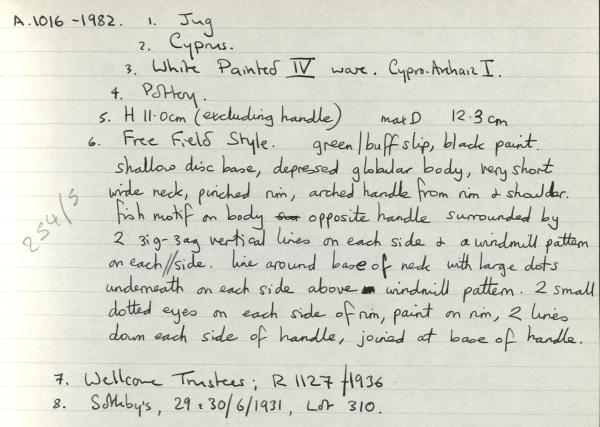 A.1016-1982. 1. Jug
2. Cyprus.
3. White Painted IV ware. Cypro-Archaic I.
4. Pottery.
5. H 11.0cm (excluding handle) max D 12.3 cm
6. Free Field Style. green/buff slip, black paint.
shallow disc base, depressed globular body, very short
wide neck, pinched rim, arched handle from rim & shoulder.
fish motif on body opposite handle surrounded by
2 zig-zag vertical lines on each side & a windmill pattern
on each//side. line around base of neck with large dots
underneath on each side above windmill pattern. 2 small
dotted eyes on each side of rim, paint on rim, 2 lines
down each side of handle, joined at base of handle.
254/5
7. Wellcome Trustees; R 1127/1936
8. Sotheby's, 29 & 30/6/1931, Lot 310.